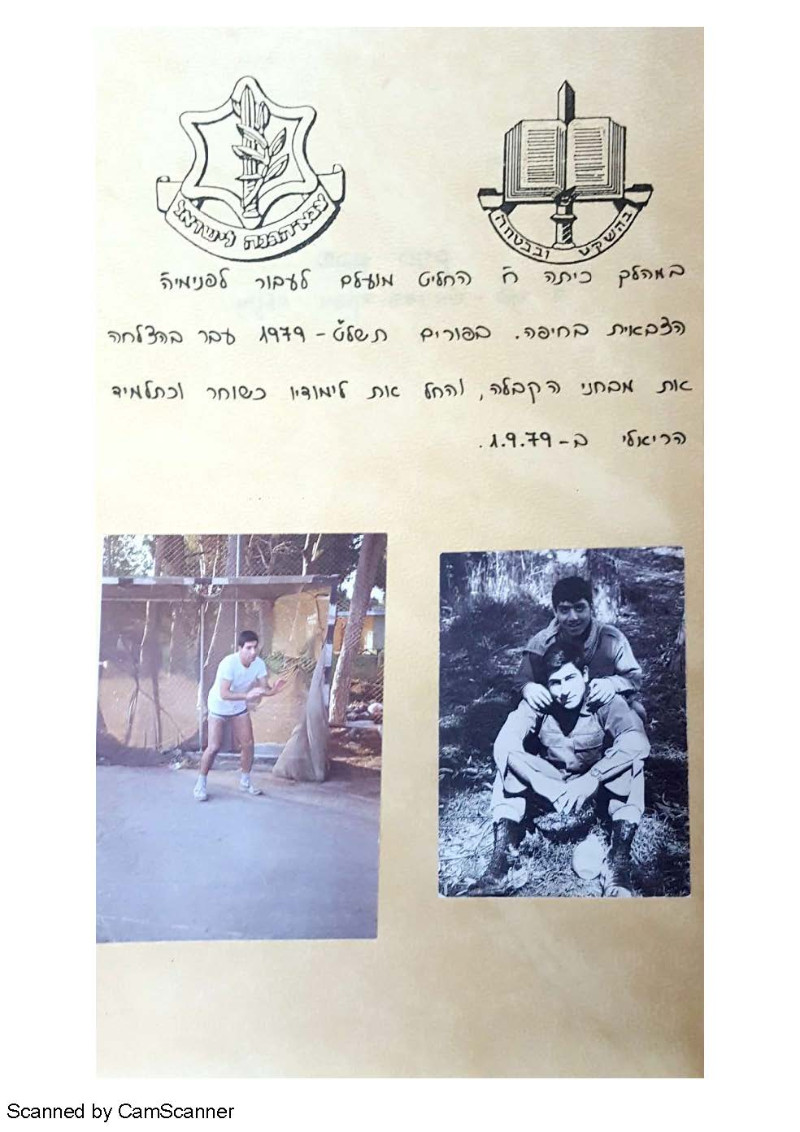 צבא הגנה לישראל
בהשקט ובבטחה
במהלך כיתה ח' החליט מועלם לעבור לפנימיה
הצבאית בחיפה. בפורים תשל"ט - 1979 עבר בהצלחה
את מבחני הקבלה, והחל את לימודיו כשוחר וכתלמיד
הריאלי ב- 1.9.79.
Scanned by CamScanner